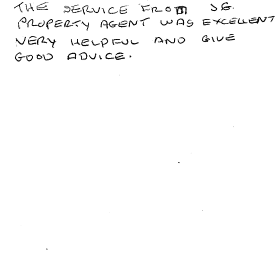 THE SERVICE FROM J.G.
PROPERTY AGENT WAS EXCELLENT
VERY HELPFUL AND GIVE
GOOD ADVICE.